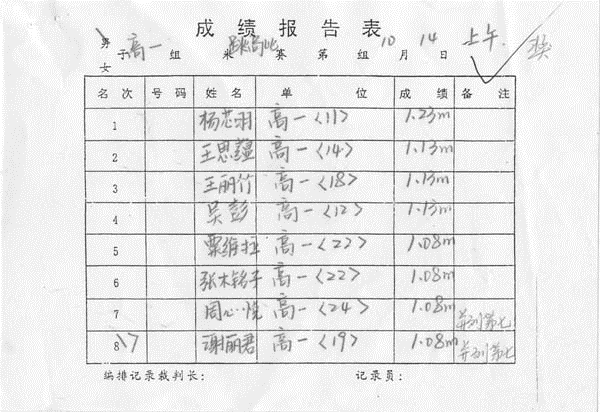 成绩报告表
男
女 子 高一 组 米 跳高 赛 第 组 10 月 14 日 上午. 奖
名次 号码 姓名 单位 成绩 备注
1 杨芯羽 高一<11> 1.23m
2 王思 高一<14> 1.13m
3 王丽竹 高一<18> 1.13m
4 吴彭 高一<12> 1.13m
5 粟维 高一<22> 1.08m
6 张木铭子 高一<22> 1.08m
7 周心悦 高一<24> 1.08m 并列第七
8 7 谢丽君 高一<19> 1.08m 并列第七
编排记录裁判长： 记录员：